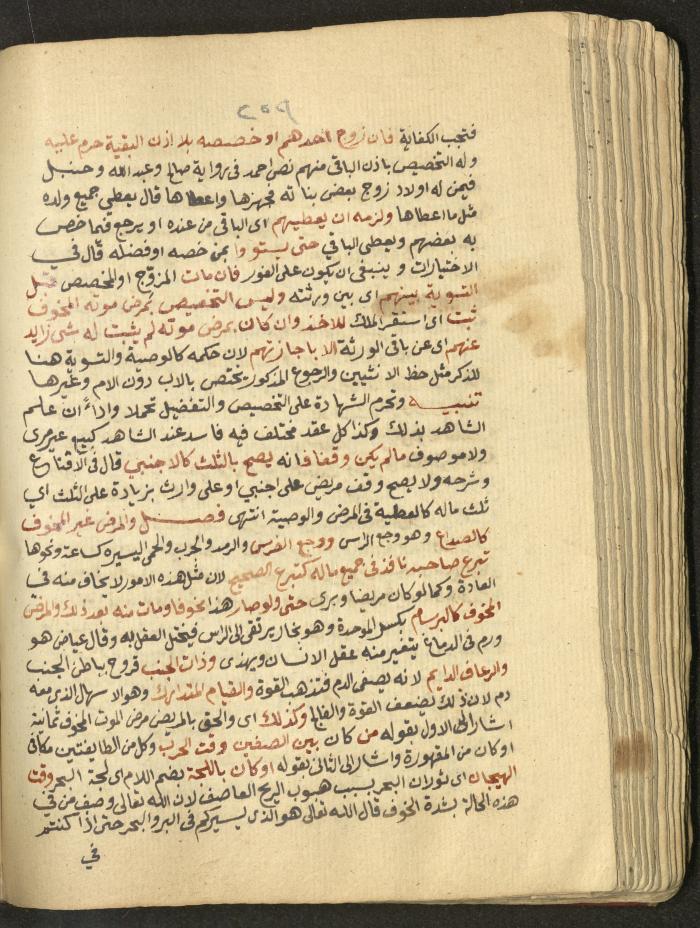 ٢٥٩
فتجب الكفاية فان زوج احدهم او خصصه بلا اذن البقية حرم عليه
وله التخصيص باذن الباقي منهم نص احمد في رواية صالح وعبد الله وحنبل
فيمن له اولاد زوج بعض بناته فجهزها واعطاها قال يعطي جميع ولده
مثل ما اعطاها ولزمه ان يعطيهم اى الباقي من عنده او يرجع فيما خص
به بعضهم ويعطى الباقي حتى يستووا بمن خصه او فضله قال في
الاختيارات وينبغى ان يكون على الفور فان مات المزوج او المخصص قبل
التسوية بينهم اى بين ورثته وليس التخصيص بمرض موته المخوف
ثبت اى استقر الملك للاخذ وان كان بمرض موته لم يثبت له شى زايد
عنهم اى عن باقي الورثة الا باجازتهم لان حكمه كالوصية والتسوية هنا
للذكر مثل حظ الانثيين والرجوع المذكور يختص بالاب دون الام وغيرها
تنبيه وتحرم الشهادة على التخصيص والتفضيل تحملا واداءً ان علم
الشاهد بذلك وكذا كل عقد مختلف فيه فاسد عند الشاهد كبيع غير مرى
ولا موصوف ما لم يكن وقفا فانه يصح بالثلث كالاجنبي قال في الاقناع
وشرحه ولا يصح وقف مريض على اجنبي او على وارث بزيادة على الثلث اي
ثلث ماله كالعطية في المرض والوصية انتهى فصل والمرض غير المخوف
كالصداع وهو وجع الراس ووجع الضرس والرمد والجرب والحمى اليسيره كساعة ونحوها
تبرع صاحبه نافذ في جميع ماله كتبرع الصحيح لان مثل هذه الامور لا يخاف منه في
العادة وكما لو كان مريضا وبرى حتى ولو صار هذا مخوفا ومات منه بعد ذلك والمرض
المخوف كالبرسام بكسر الموحدة وهو بخار يرتقي الى الراس فيختل العقل به وقال عياض هو
ورم في الدماغ يتغير منه عقل الانسان ويهذى وذات الجنب قروح بباطن الجنب
والرعاف الدايم لانه يصفى الدم فتذهب القوة والقيام المتدارك وهو الاسهال الذي معه
دم لان ذلك يضعف القوة والفالج وكذلك اى والحق بالمريض مرض الموت المخوف ثمانية
اشار الى الاول بقوله من كان بين الصفين وقت الحرب وكل من الطايفتين مكافى
او كان من المقهورة واشار الى الثاني بقوله او كان باللجة بضم اللام اى لجة البحر وقت
الهيجان اى ثوران البحر بسبب هبوب الريح العاصف لان الله تعالى وصف من في
هذه الحالة بشدة الخوف قال الله تعالى هو الذي يسيركم في البر والبحر حتى اذا كنتم
في